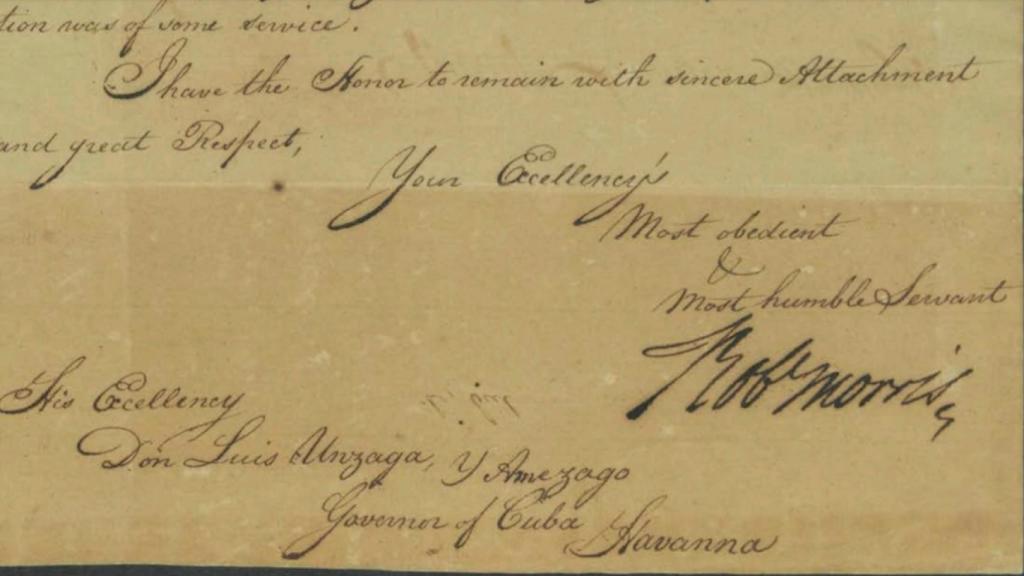 tion was of some service.
I have the Honor to remain with sincere Attachment
and great Respect,
Your Excellency's
Most obedient
&
Most humble Servant
Robt Morris,
His Excellency
Don Luis Unzaga, y Amezago
Governor of Cuba Havanna